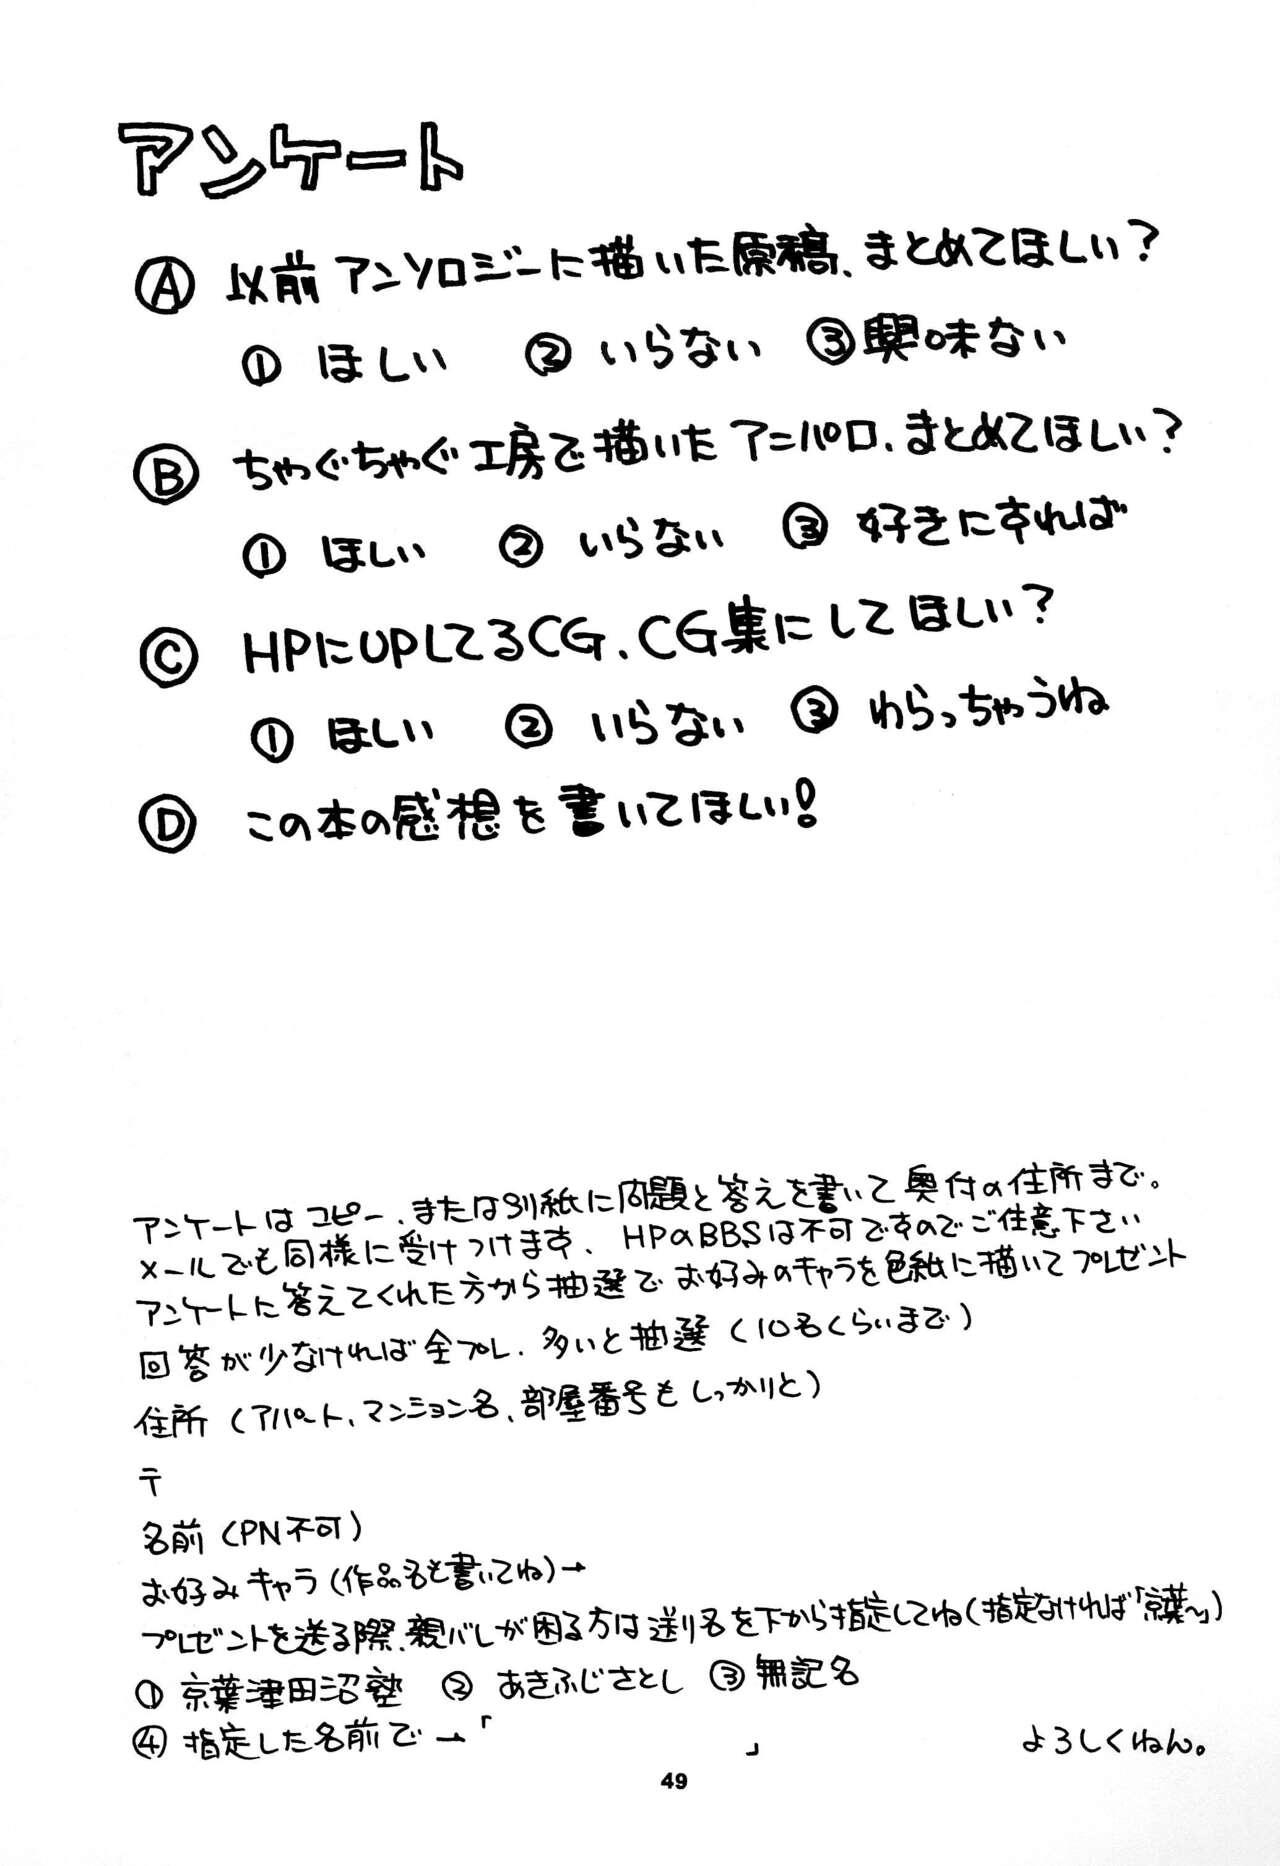 アンケート
Ⓐ 以前アンソロジーに描いた原稿、まとめてほしい?
① ほしい ② いらない ③ 興味ない
Ⓑ ちゃぐちゃぐ工房で描いたアニパロ、まとめてほしい?
① ほしい ② いらない ③ 好きにすれば
Ⓒ HPにUPしてるCG、CG集にしてほしい?
① ほしい ② いらない ③ わらっちゃうね
Ⓓ この本の感想を書いてほしい!
アンケートはコピー、または別紙に問題と答えを書いて奥付の住所まで。
メールでも同様に受けつけます、HPのBBSは不可ですのでご注意下さい
アンケートに答えてくれた方から抽選でお好みのキャラを色紙に描いてプレゼント
回答が少なければ全プレ、多いと抽選(10名くらいまで)
住所(アパート、マンション名、部屋番号もしっかりと)
〒
名前(PN不可)
お好みキャラ(作品名も書いてね)→
プレゼントを送る際、親バレが困る方は送り名を下から指定してね(指定なければ「京葉〜」)
① 京葉津田沼塾 ② あきふじさとし ③ 無記名
④ 指定した名前で→「 」 よろしくねん。
49